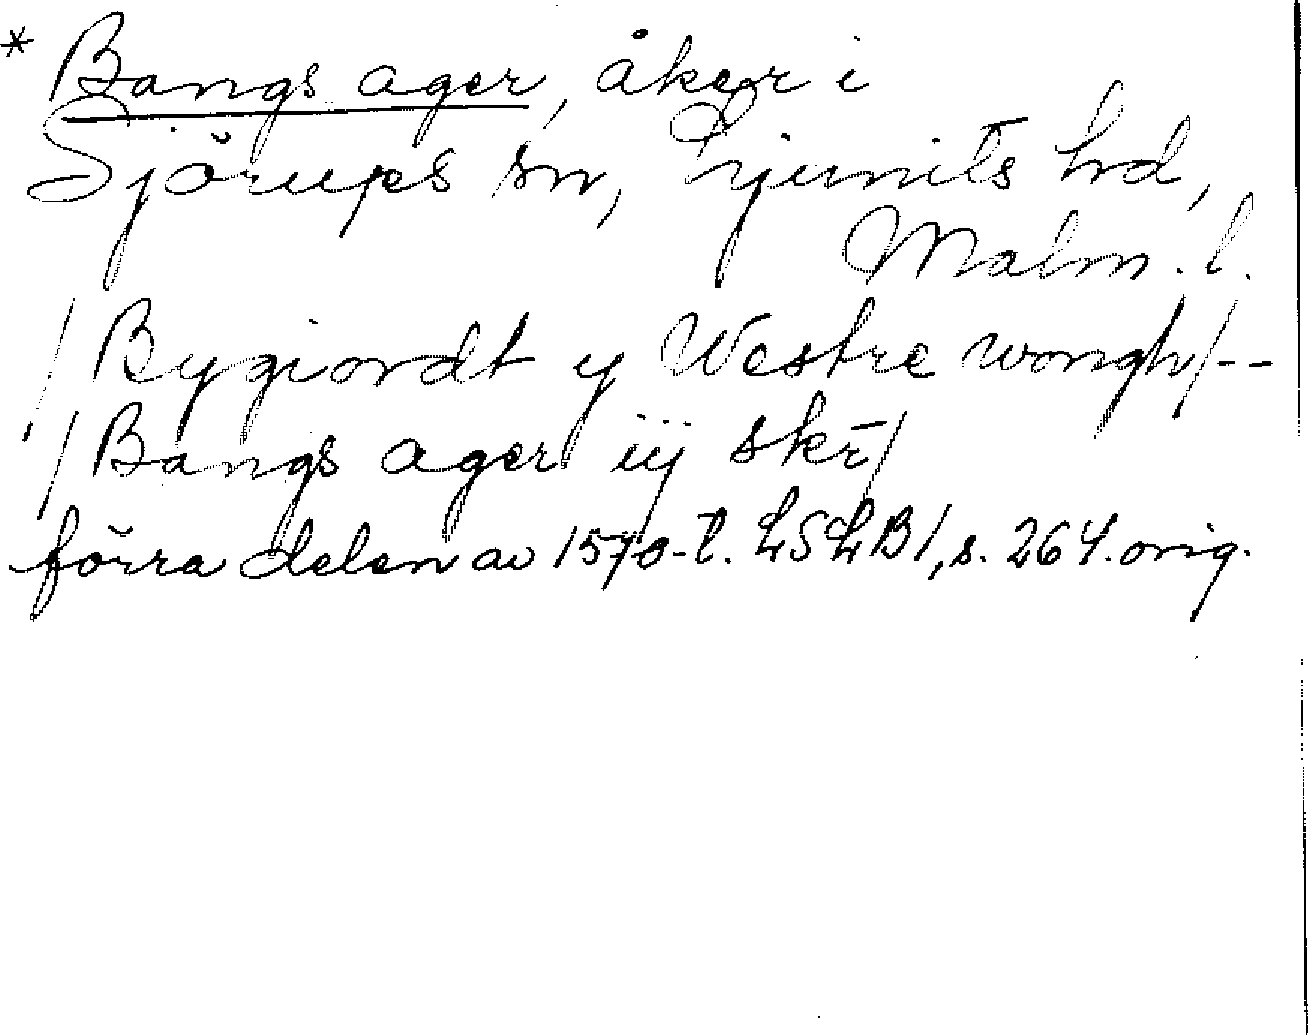 * Bangs ager, åker i
Sjörups sn, Ljunits hd,
Malm. l.
/Bygiordt y Westre wongh/--
/Bangs ager iÿ skr/
förra delen av 1570-t. LSLB1, s. 264. orig.